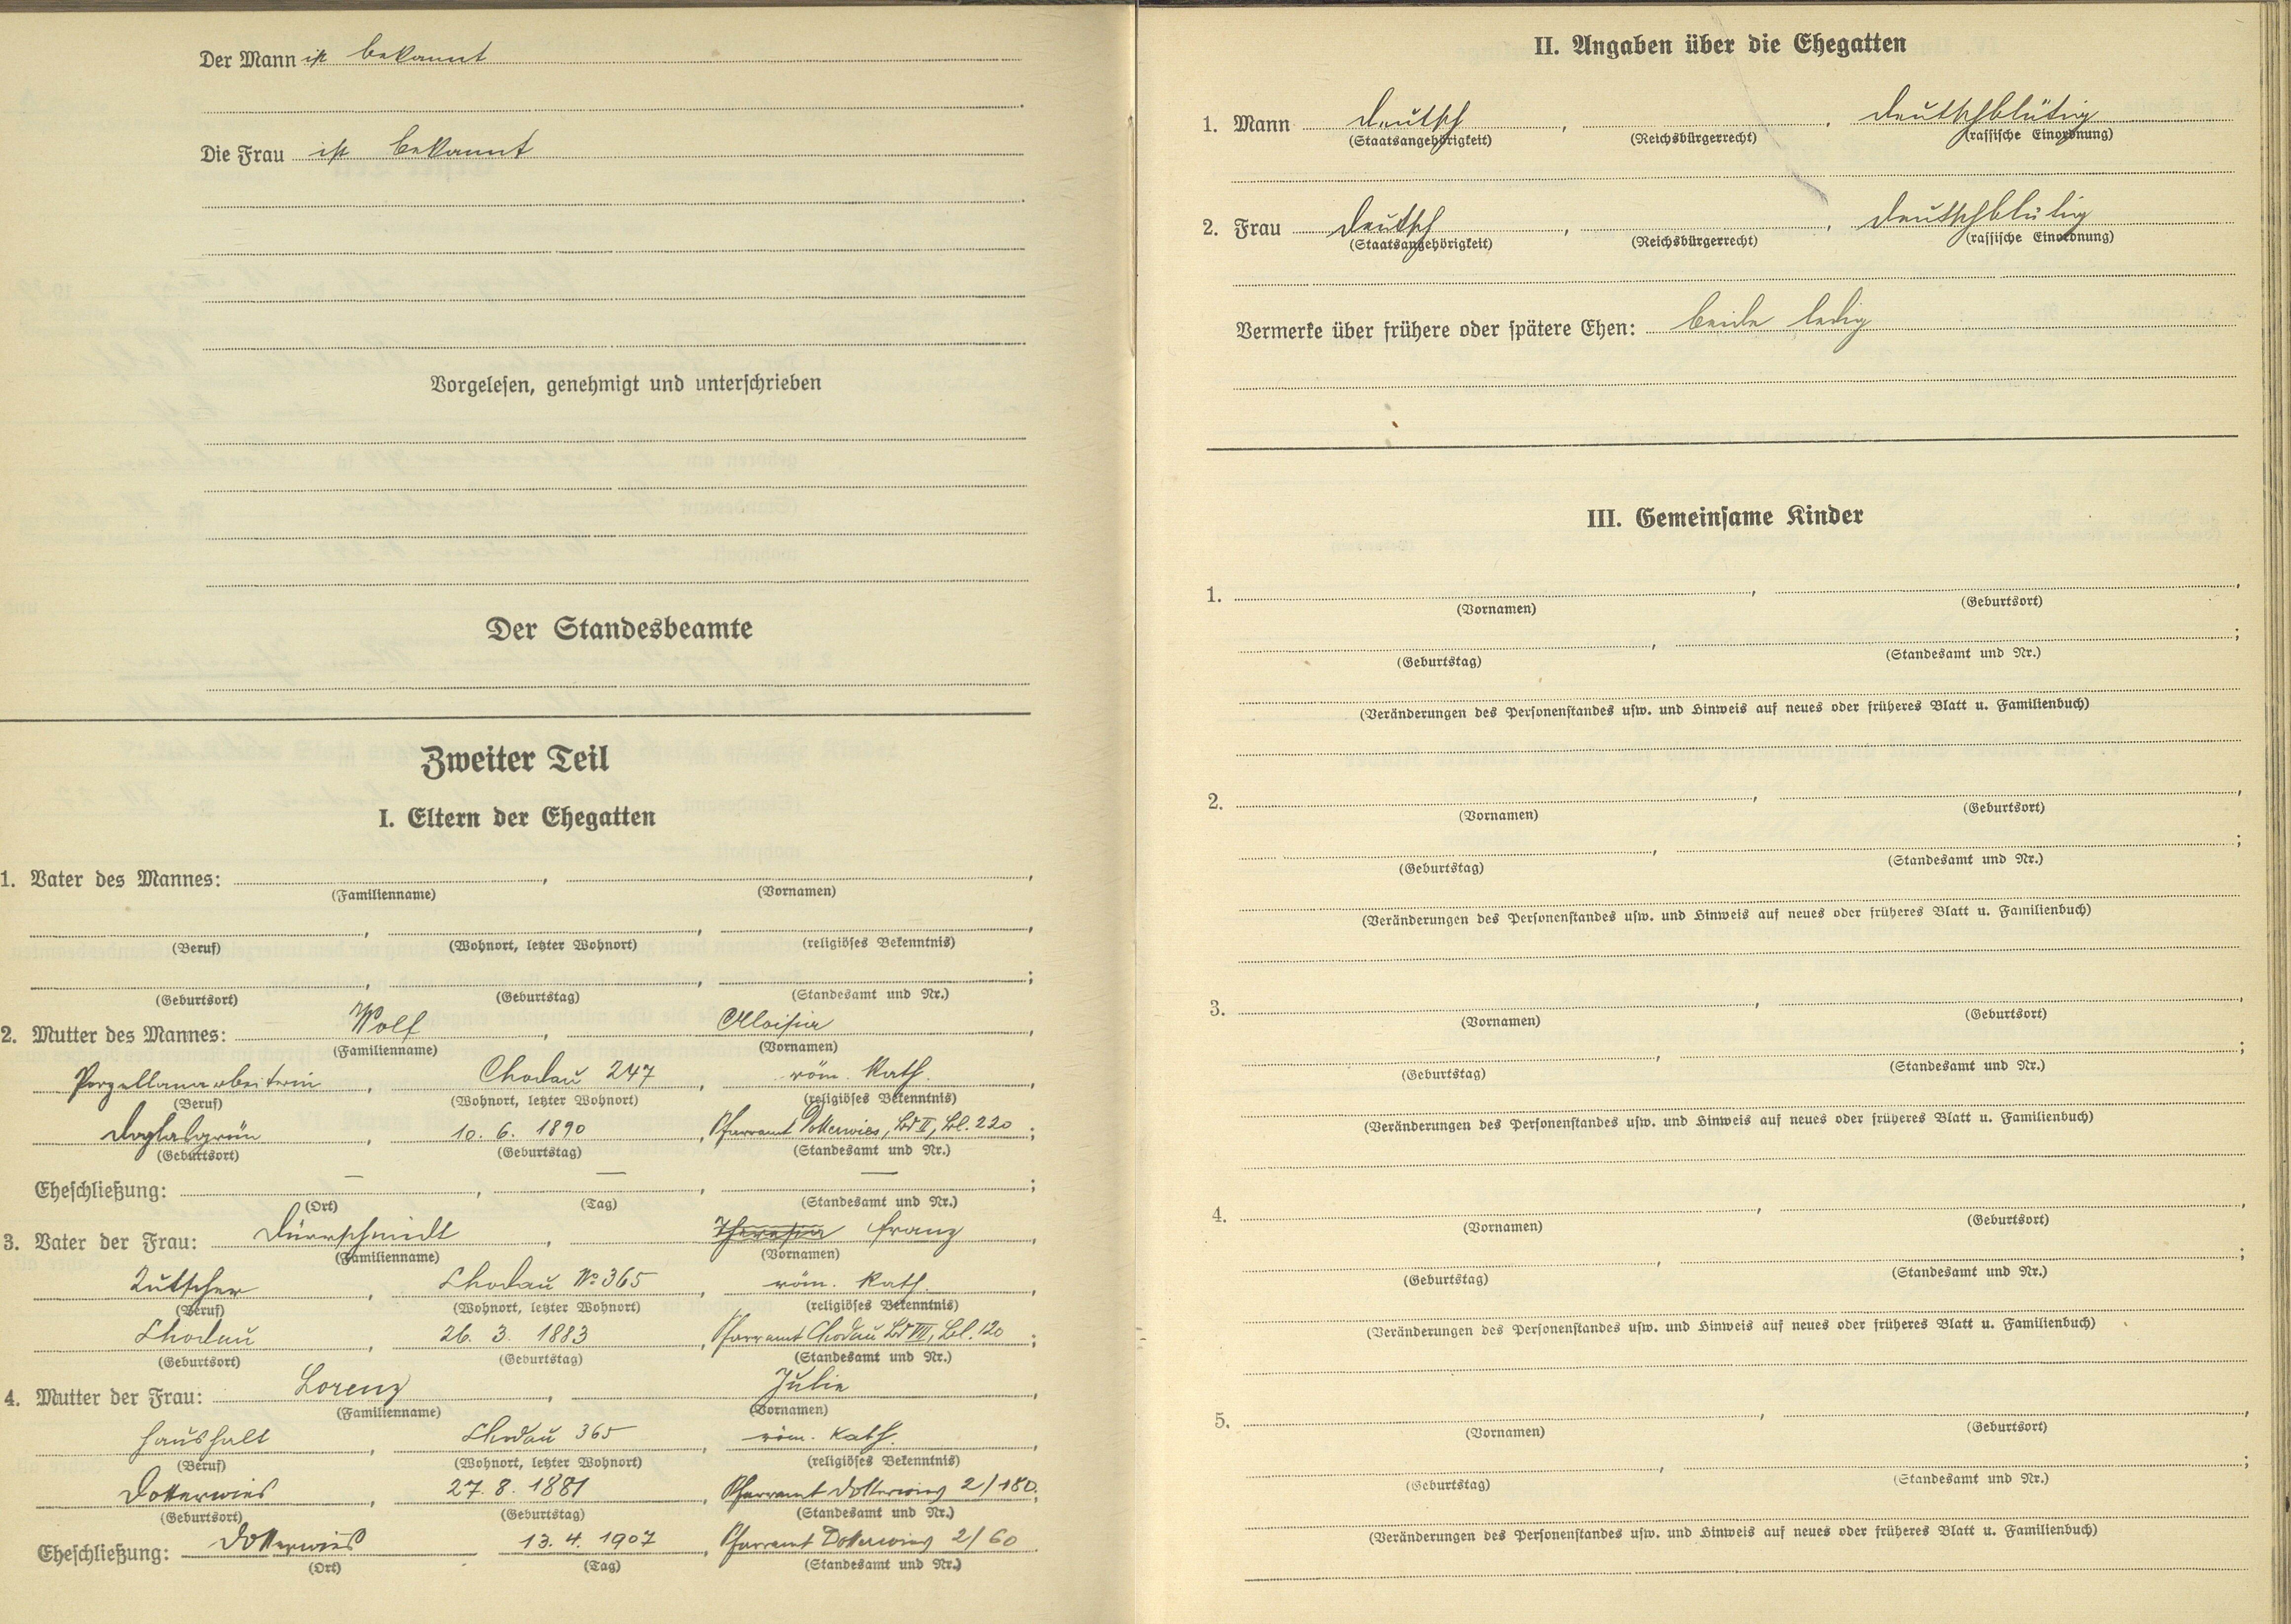 Der Mann ist bekannt
Die Frau ist bekannt
Vorgelesen, genehmigt und unterschrieben
Der Standesbeamte
Zweiter Teil
I. Eltern der Ehegatten
1. Vater des Mannes: , ,
(Familienname) (Vornamen)
, , ,
(Beruf) (Wohnort, letzter Wohnort) (religiöses Bekenntnis)
, , ;
(Geburtsort) (Geburtstag) (Standesamt und Nr.)
2. Mutter des Mannes: Wolf , Aloisia ,
(Familienname) (Vornamen)
Porzellanarbeiterin , Chodau 247 , röm. kath. ,
(Beruf) (Wohnort, letzter Wohnort) (religiöses Bekenntnis)
Doglasgrün , 10. 6. 1890 , Pfarramt Dotterwies, Bd II, Bl. 220 ;
(Geburtsort) (Geburtstag) (Standesamt und Nr.)
Eheschließung: — , — , — ;
(Ort) (Tag) (Standesamt und Nr.)
3. Vater der Frau: Dürrschmidt , Theresia Franz ,
(Familienname) (Vornamen)
Kutscher , Chodau No 365 , röm. kath. ,
(Beruf) (Wohnort, letzter Wohnort) (religiöses Bekenntnis)
Chodau , 26. 3. 1883 , Pfarramt Chodau Bd VIII, Bl. 120 ;
(Geburtsort) (Geburtstag) (Standesamt und Nr.)
4. Mutter der Frau: Lorenz , Julie ,
(Familienname) (Vornamen)
Haushalt , Chodau 365 , röm. kath. ,
(Beruf) (Wohnort, letzter Wohnort) (religiöses Bekenntnis)
Dotterwies , 27. 8. 1881 , Pfarramt Dotterwies 2/180 ;
(Geburtsort) (Geburtstag) (Standesamt und Nr.)
Eheschließung: Dotterwies 13. 4. 1907 , Pfarramt Dotterwies 2/60 .
(Ort) (Tag) (Standesamt und Nr.)
II. Angaben über die Ehegatten
1. Mann Deutsch , , deutschblütig
(Staatsangehörigkeit) (Reichsbürgerrecht) (rassische Einordnung)
2. Frau Deutsch , , deutschblütig
(Staatsangehörigkeit) (Reichsbürgerrecht) (rassische Einordnung)
Vermerke über frühere oder spätere Ehen: beide ledig
III. Gemeinsame Kinder
1. , ,
(Vornamen) (Geburtsort)
, ;
(Geburtstag) (Standesamt und Nr.)
(Veränderungen des Personenstandes usw. und Hinweis auf neues oder früheres Blatt u. Familienbuch)
2. , ,
(Vornamen) (Geburtsort)
, ;
(Geburtstag) (Standesamt und Nr.)
(Veränderungen des Personenstandes usw. und Hinweis auf neues oder früheres Blatt u. Familienbuch)
3. , ,
(Vornamen) (Geburtsort)
, ;
(Geburtstag) (Standesamt und Nr.)
(Veränderungen des Personenstandes usw. und Hinweis auf neues oder früheres Blatt u. Familienbuch)
4. , ,
(Vornamen) (Geburtsort)
, ;
(Geburtstag) (Standesamt und Nr.)
(Veränderungen des Personenstandes usw. und Hinweis auf neues oder früheres Blatt u. Familienbuch)
5. , ,
(Vornamen) (Geburtsort)
, ;
(Geburtstag) (Standesamt und Nr.)
(Veränderungen des Personenstandes usw. und Hinweis auf neues oder früheres Blatt u. Familienbuch)